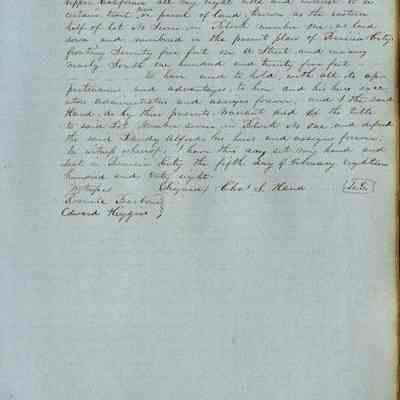 Upper California all my right title and interest to a
certain tract, or parcel of land, known as the eastern
half of lot No Seven, in Block number one, as laid
down and numbered in the present plan of Benicia City,
fronting Seventy five feet on A Street, and running
nearly North one hundred and twenty five feet
To have and to hold, with all its ap-
purtenances and advantages, to him and his heirs exec-
utors administrators and assigns forever, and I the said
Hand, do by these presents, warrant the title
to said Lot Number seven, in Block No one, and defend
the same Handy Alfords his heirs and assigns forever.
In witness whereof, I have this day set my hand and
seal in Benicia City the fifth day of February eighteen
hundred and forty eight.
Witness (Signed) Chas. S. Hand L.S.
Edward Higgins